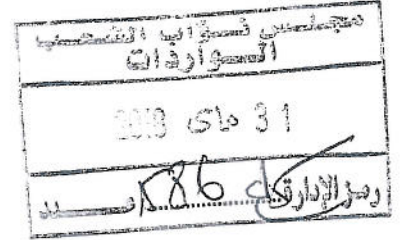 مجلس نواب الشعب
الواردات
31 ماي
رمز الإدارة 586 عدد